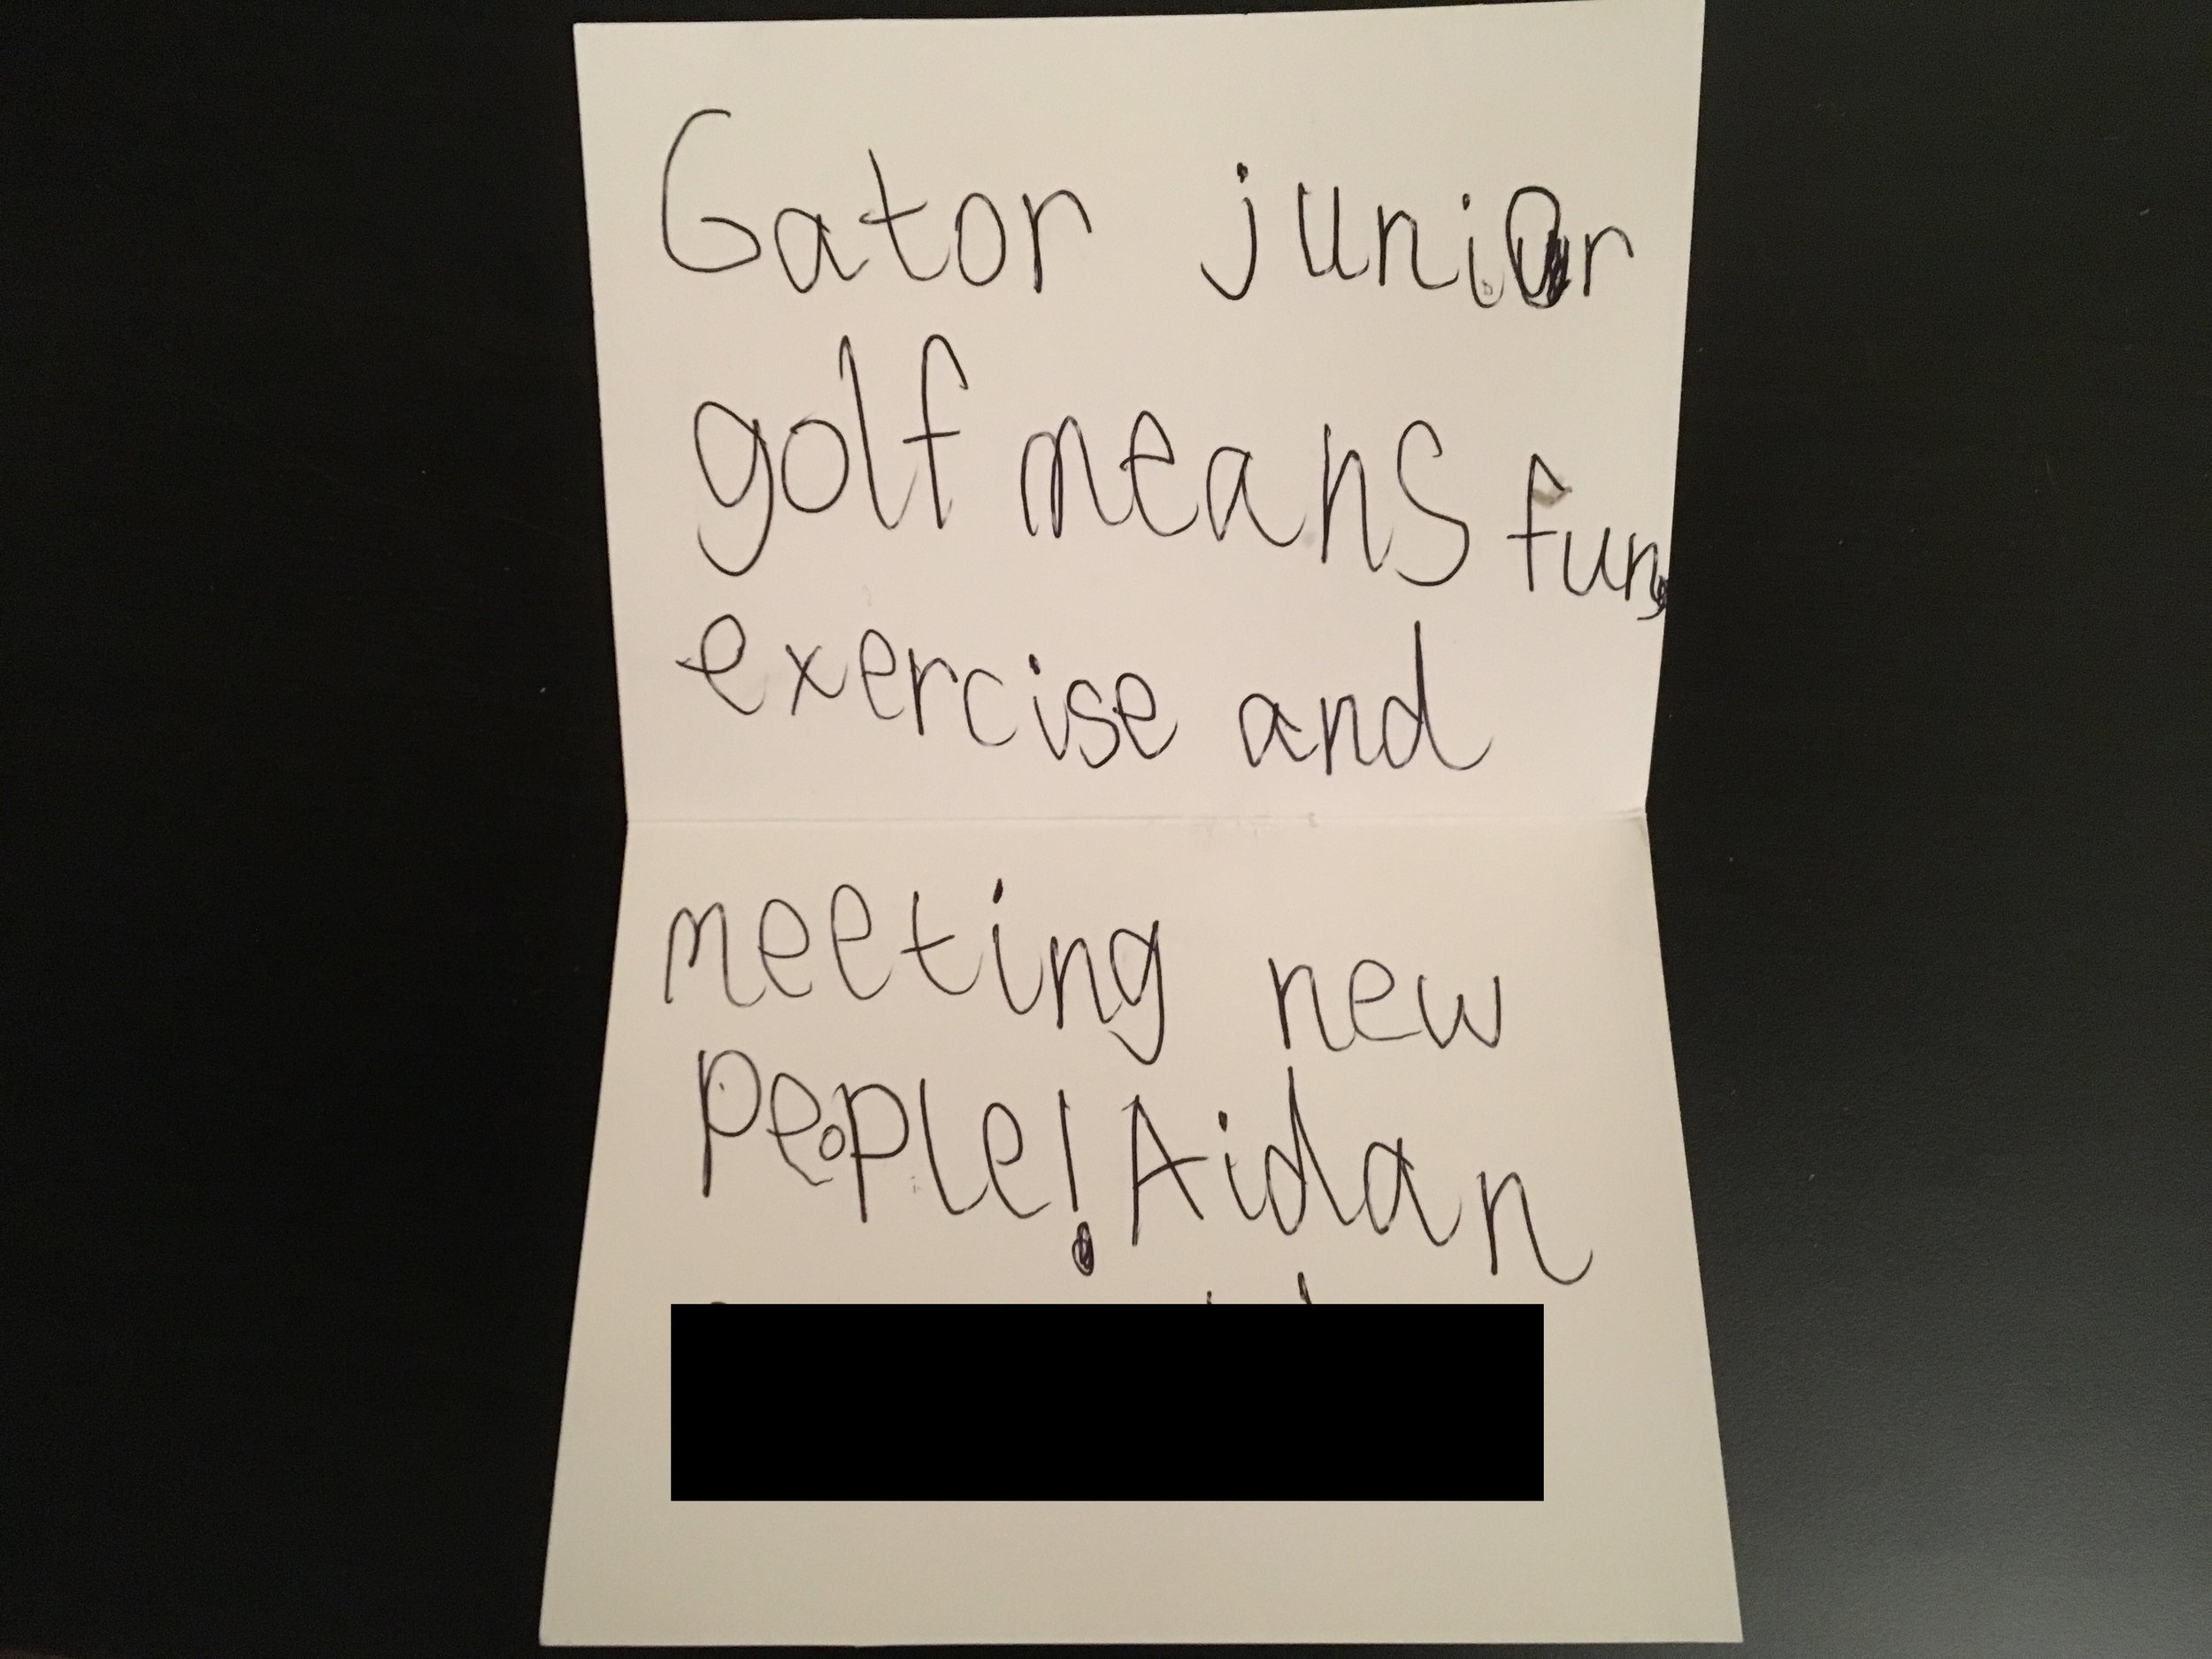 Gator junior
golf means fun,
exercise and
meeting new
people! Aidan